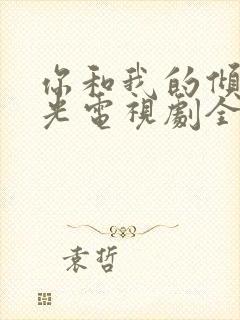 你和我的傾
光電視劇全
袁哲